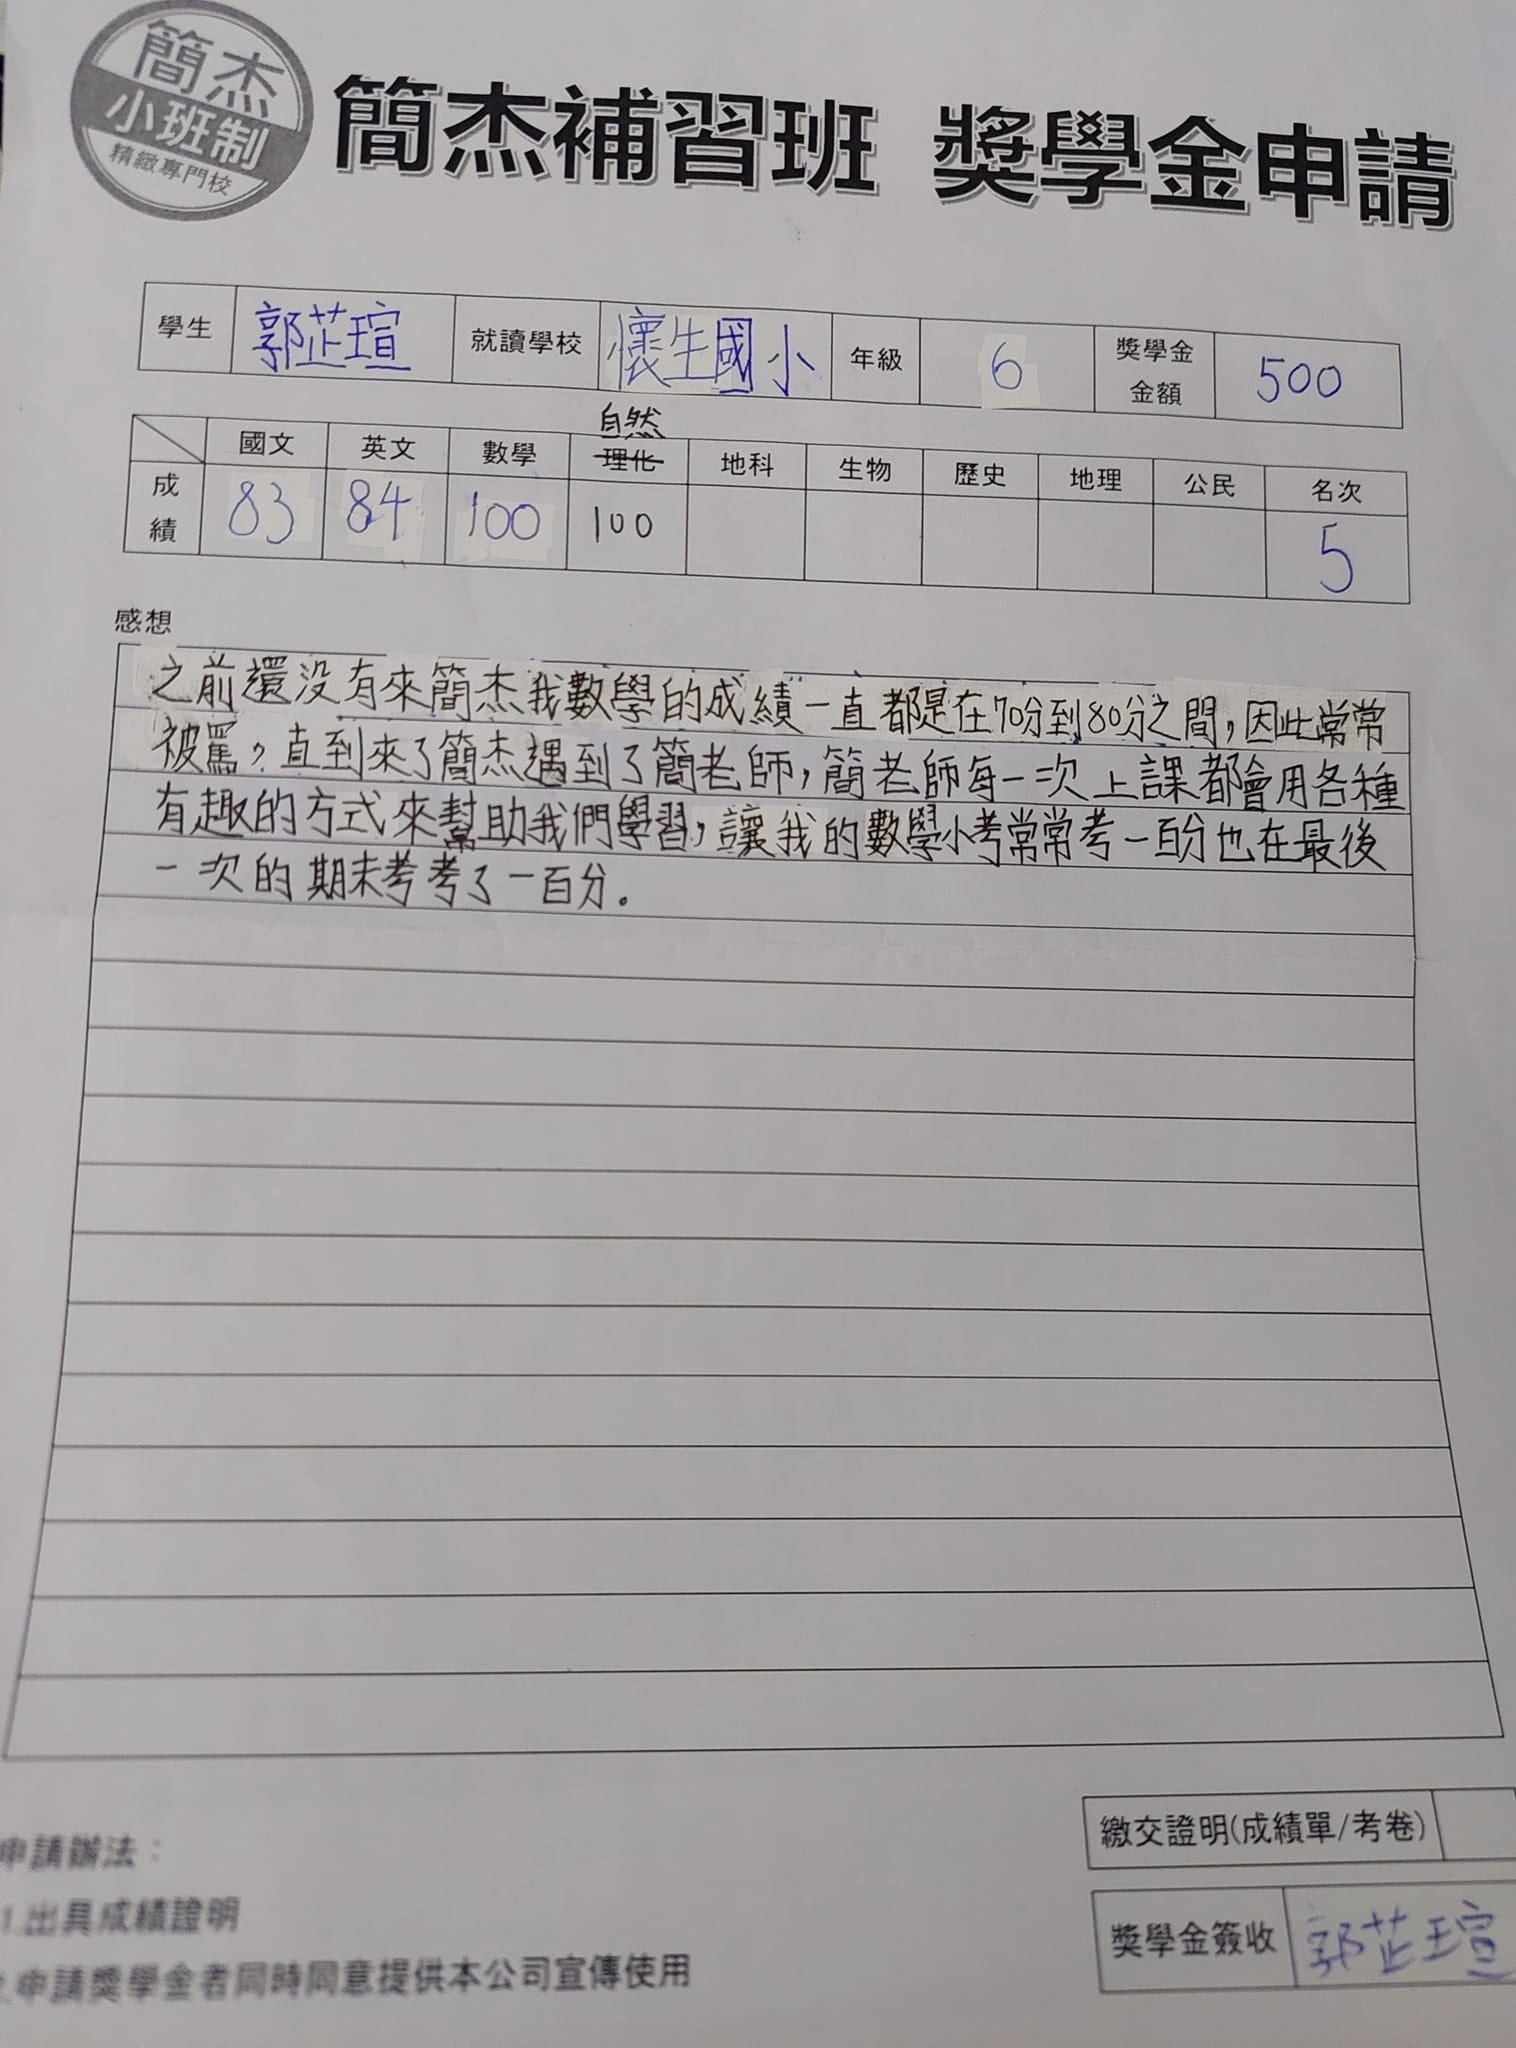 簡杰
小班制
精緻專門校
簡杰補習班 獎學金申請
學生 郭芷瑄 就讀學校 懷生國小 年級 6 獎學金金額 500
自然
國文 英文 數學 理化 地科 生物 歷史 地理 公民 名次
成績 83 84 100 100 5
感想
之前還没有來簡杰我數學的成績一直都是在70分到80分之間,因此常常
被罵,直到來了簡杰遇到了簡老師,簡老師每一次上課都會用各種
有趣的方式來幫助我們學習,讓我的數學小考常常考一百分也在最後
一次的期末考考了一百分。
繳交證明(成績單/考卷)
申請辦法：
1.出具成績證明
獎學金簽收 郭芷瑄
2.申請獎學金者同時同意提供本公司宣傳使用